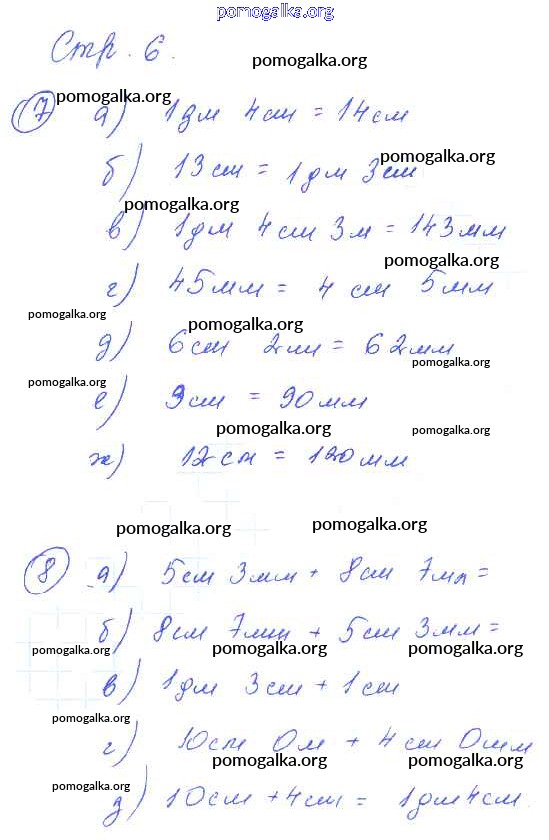 pomogalka.org
Стр. 6.
pomogalka.org
pomogalka.org
7 а) 1дм 4см = 14см
pomogalka.org
б) 13см = 1дм 3см
pomogalka.org
в) 1дм 4см 3м = 143мм
pomogalka.org
г) 45мм = 4 см 5мм
pomogalka.org
pomogalka.org
д) 6см 2мм = 62мм
pomogalka.org
pomogalka.org
е) 9см = 90мм
pomogalka.org
pomogalka.org
ж) 12см = 120мм
pomogalka.org
pomogalka.org
8 а) 5см 3мм + 8см 7мм =
б) 8см 7мм + 5см 3мм =
pomogalka.org
pomogalka.org
в) 1дм 3см + 1см
pomogalka.org
г) 10см 0м + 4см 0мм
pomogalka.org
pomogalka.org
д) 10см + 4см = 1дм 4см.
pomogalka.org